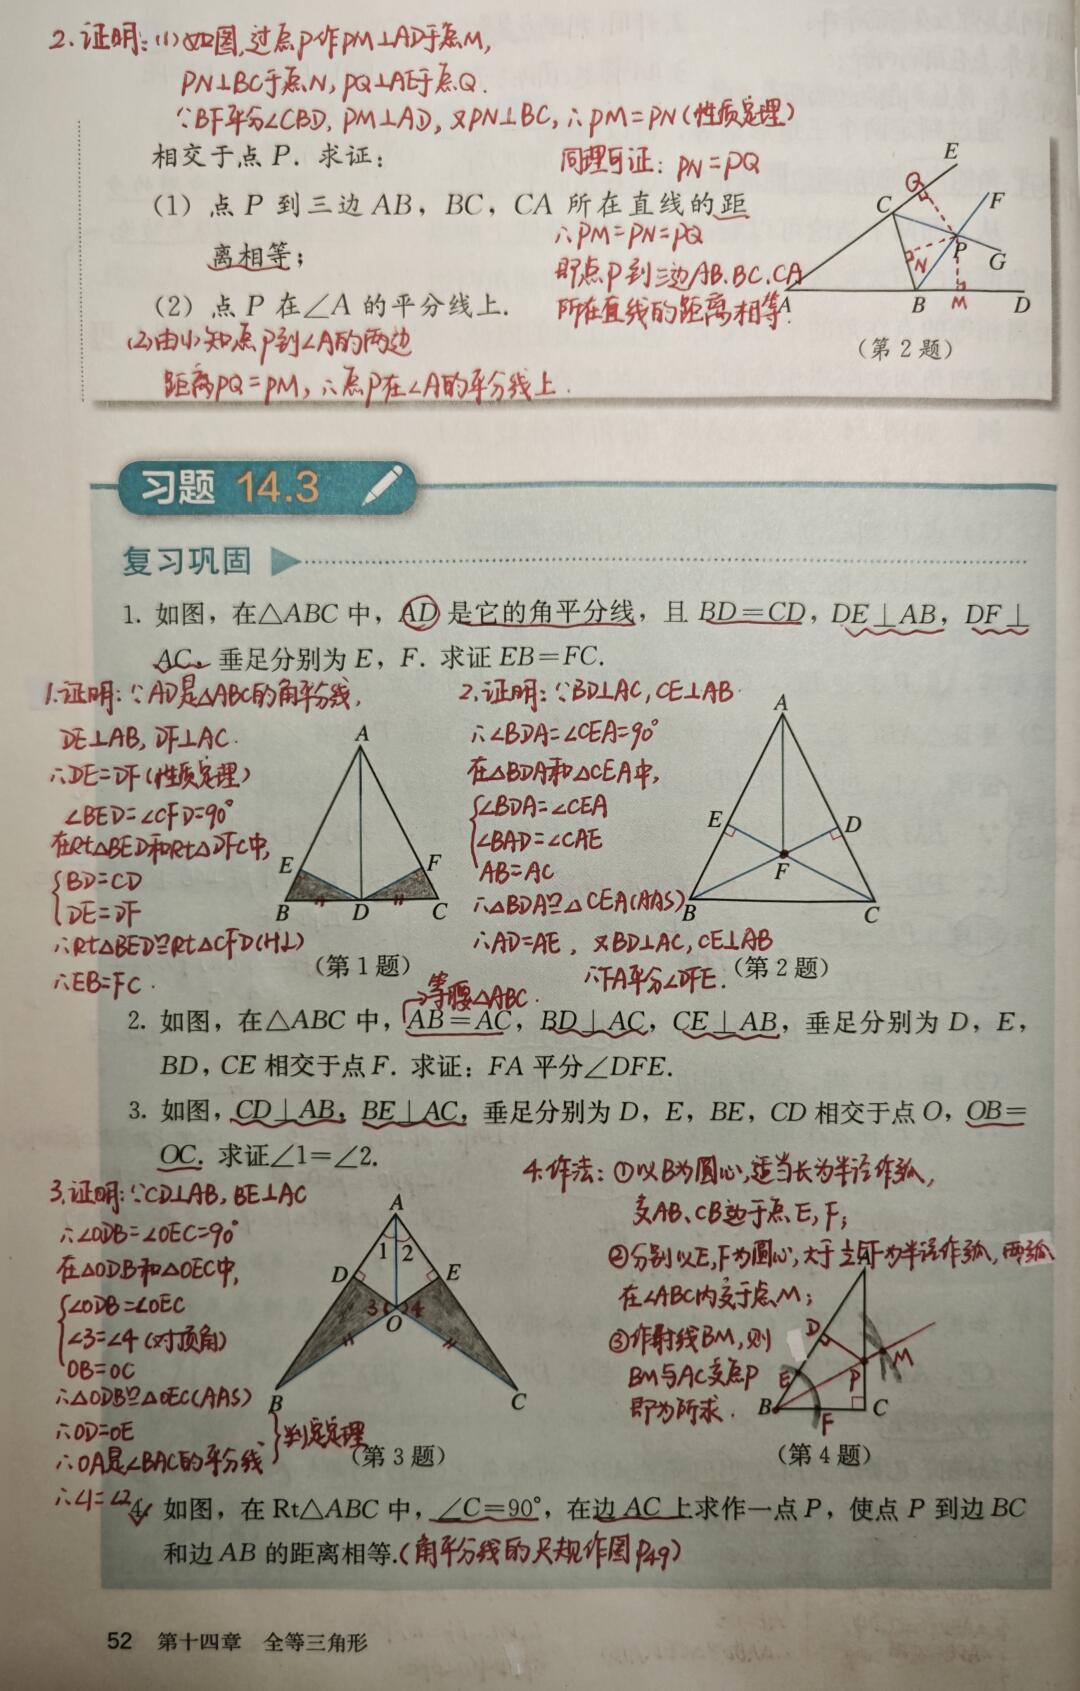 2.证明:(1)如图,过点P作PM⊥AD于点M,
PN⊥BC于点N,PQ⊥AE于点Q.
∵BF平分∠CBD,PM⊥AD,又PN⊥BC,∴PM=PN(性质定理)
相交于点 P. 求证:
同理可证:PN=PQ
(1) 点 P 到三边 AB, BC, CA 所在直线的距
离相等;
∴PM=PN=PQ
即点P到三边AB.BC.CA
(2) 点 P 在∠A 的平分线上.
所在直线的距离相等.
(2)由(1)知点P到∠A的两边
距离PQ=PM,∴点P在∠A的平分线上.
E
Q
C
F
P
N
G
A
B
M
D
(第 2 题)
习题 14.3
复习巩固
1. 如图, 在△ABC 中, AD 是它的角平分线, 且 BD=CD, DE⊥AB, DF⊥
AC, 垂足分别为 E, F. 求证 EB=FC.
1.证明:∵AD是△ABC的角平分线,
DE⊥AB,DF⊥AC.
∴DE=DF(性质定理)
∠BED=∠CFD=90°
在Rt△BED和Rt△DFC中,
BD=CD
DE=DF
∴Rt△BED≌Rt△CFD(HL)
∴EB=FC.
A
E
F
B
D
C
(第 1 题)
2.证明:∵BD⊥AC,CE⊥AB
∴∠BDA=∠CEA=90°
在△BDA和△CEA中,
∠BDA=∠CEA
∠BAD=∠CAE
AB=AC
∴△BDA≌△CEA(AAS)
∴AD=AE, 又BD⊥AC,CE⊥AB
∴FA平分∠DFE.
A
E
D
F
B
C
(第 2 题)
等腰△ABC.
2. 如图, 在△ABC 中, AB=AC, BD⊥AC, CE⊥AB, 垂足分别为 D, E,
BD, CE 相交于点 F. 求证: FA 平分∠DFE.
3. 如图, CD⊥AB, BE⊥AC, 垂足分别为 D, E, BE, CD 相交于点 O, OB=
OC. 求证∠1=∠2.
3.证明:∵CD⊥AB,BE⊥AC
∴∠ODB=∠OEC=90°
在△ODB和△OEC中,
∠ODB=∠OEC
∠3=∠4(对顶角)
OB=OC
∴△ODB≌△OEC(AAS)
∴OD=OE
∴OA是∠BAC的平分线
∴∠1=∠2
判定定理
A
1 2
D
E
3
4
O
B
C
(第 3 题)
4.作法:①以B为圆心,适当长为半径作弧,
交AB、CB边于点E,F;
②分别以E,F为圆心,大于½EF为半径作弧,两弧
在∠ABC内交于点M;
③作射线BM,则
BM与AC交点P
即为所求.
A
D
M
E
P
B
F
C
(第 4 题)
4. 如图, 在 Rt△ABC 中, ∠C=90°, 在边 AC 上求作一点 P, 使点 P 到边 BC
和边 AB 的距离相等.(角平分线的尺规作图P49)
52 第十四章 全等三角形